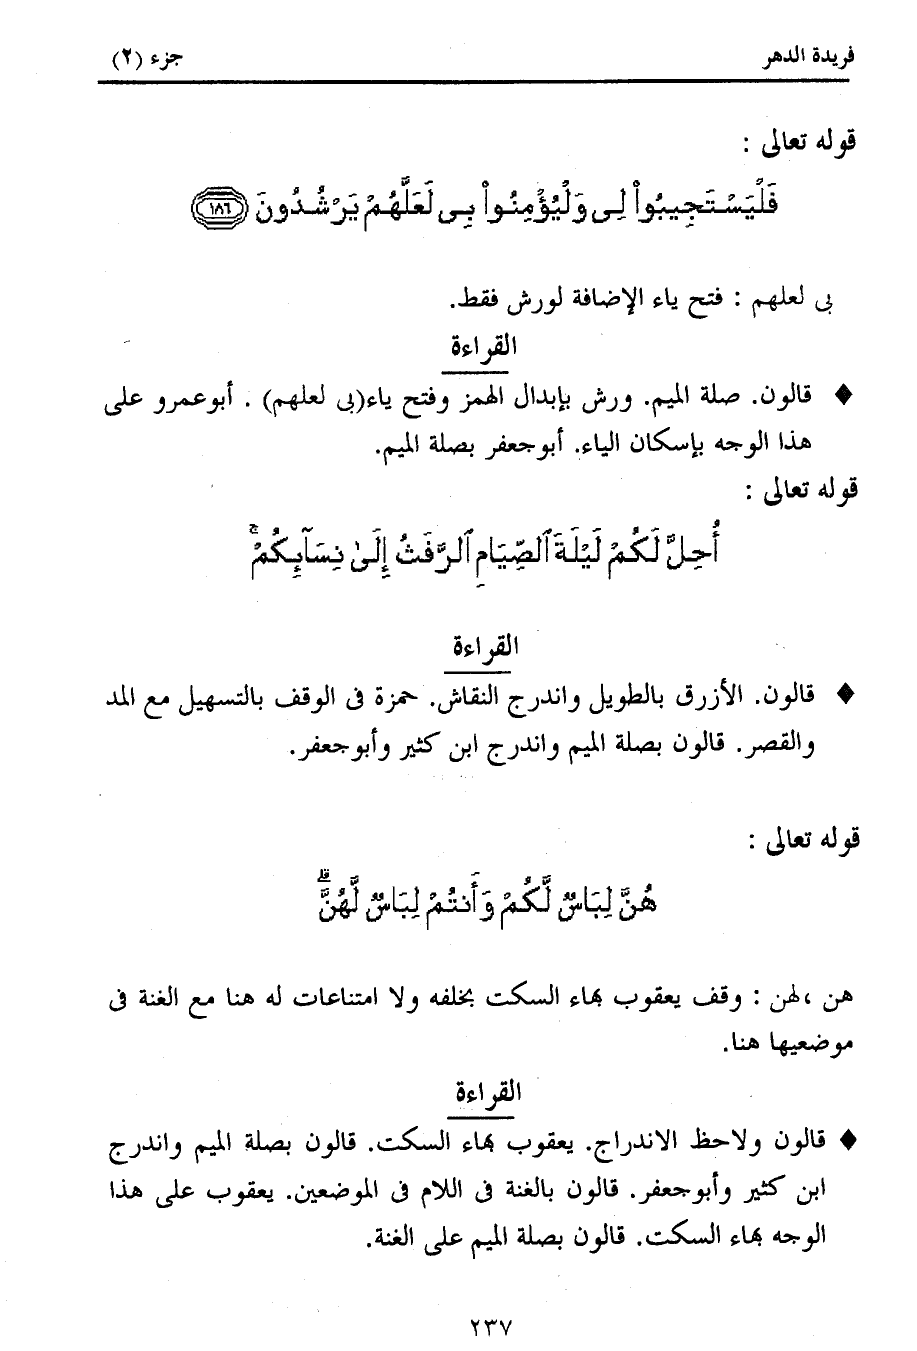 فريدة الدهر
جزء (٢)
قوله تعالى :
فَلْيَسْتَجِيبُوا۟ لِى وَلْيُؤْمِنُوا۟ بِى لَعَلَّهُمْ يَرْشُدُونَ ١٨٦
بى لعلهم : فتح ياء الإضافة لورش فقط.
القراءة
♦ قالون. صلة الميم. ورش بإبدال الهمز وفتح ياء(بى لعلهم) . أبوعمرو على
هذا الوجه بإسكان الياء. أبوجعفر بصلة الميم.
قوله تعالى :
أُحِلَّ لَكُمْ لَيْلَةَ ٱلصِّيَامِ ٱلرَّفَثُ إِلَىٰ نِسَآئِكُمْ ۚ
القراءة
♦ قالون. الأزرق بالطويل واندرج النقاش. حمزة فى الوقف بالتسهيل مع المد
والقصر. قالون بصلة الميم واندرج ابن كثير وأبوجعفر.
قوله تعالى :
هُنَّ لِبَاسٌ لَّكُمْ وَأَنتُمْ لِبَاسٌ لَّهُنَّ ۗ
هن ،لهن : وقف يعقوب بهاء السكت بخلفه ولا امتناعات له هنا مع الغنة فى
موضعيها هنا.
القراءة
♦ قالون ولاحظ الاندراج. يعقوب بهاء السكت. قالون بصلة الميم واندرج
ابن كثير وأبوجعفر. قالون بالغنة فى اللام فى الموضعين. يعقوب على هذا
الوجه بهاء السكت. قالون بصلة الميم على الغنة.
٢٣٧